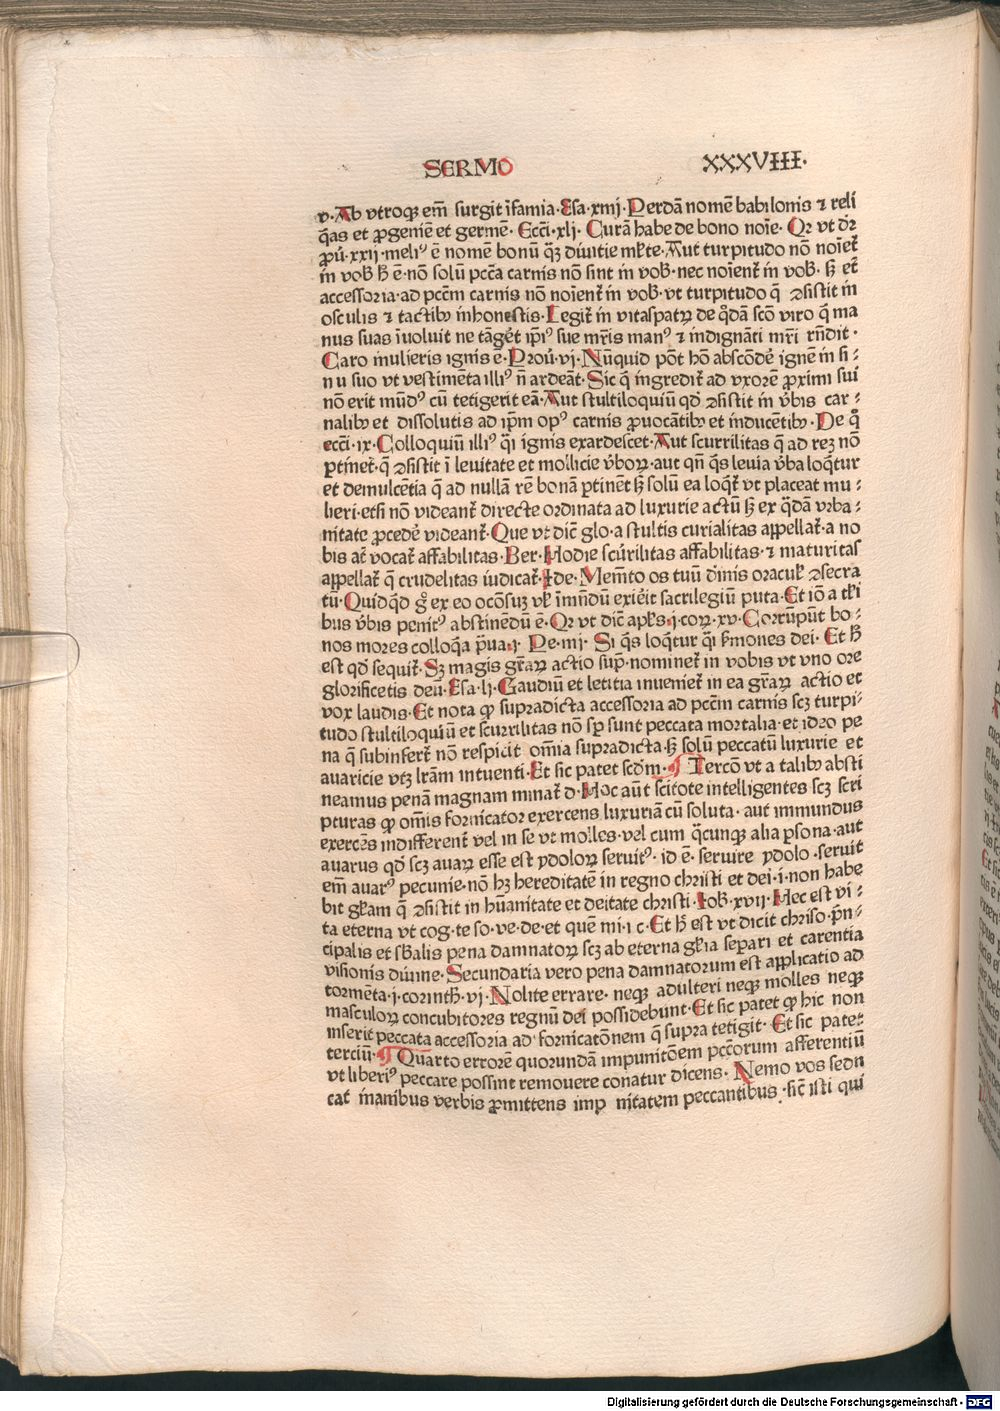 SERMO XXXVIII.
v. Ab vtroqȝ em̄ surgit ĩfamia. Esa. xiiij. Perdā nomē babilonis ⁊ reli
q̄as et ꝓgeniē et germē. Ecc̄i. xlj. Curā habe de bono noīe. Qr vt dr̄
ꝓũ. xxij. meliꝰ ē nomē bonū q̄ȝ diuitie ml̄te. Aut turpitudo nō noīet᷑
in vob̄ h̄ ē. nō solū pcc̄a carnis nō sint in vob̄. nec noīent᷑ in vob̄. sȝ et᷑
accessoria. ad pcc̄m carnis nō noīent᷑ in vob̄. vt turpitudo q̄ ꝯsistit in
osculis ⁊ tactibꝰ inhonestis. Legit᷑ in vitaspatꝝ de q̊dā scō viro q̄ ma
nus suas īuoluit ne tāgēt ip̄iꝰ sue mr̄is manꝰ ⁊ indignāti mr̄i rn̄dit.
Caro mulieris ignis ē. Prouͬ. vj. Nūquid pōt hō abscōdē ignē in si-
nu suo vt vestimēta illiꝰ n̄ ardeāt. Sic q̄ ingredit᷑ ad vxorē ꝓximi sui
nō erit mūdꝰ cū tetigerit eā. Aut stultiloquiū qd̓ ꝯsistit in v̄bis car-
nalibꝰ et dissolutis ad ip̄m opꝰ carnis ꝓuocātibꝰ et inducētibꝰ. De q̊
ecc̄i. ix. Colloquiū illiꝰ q̄i ignis exardescet. Aut scurrilitas q̄ ad reȝ nō
ꝑtinet. q̄ ꝯsistit ī leuitate et mollicie v̄boꝝ. aut qn̄ q̄s leuia v̄ba loq̄tur
et demulcētia q̄ ad nullā rē bonā ꝑtinēt sȝ solū ea loq̄t᷑ vt placeat mu-
lieri. etsi nō videant᷑ directe ordinata ad luxurie actū sȝ ex q̄dā vrba-
nitate ꝓcedē videant᷑. Que vt dic̄ glo. a stultis curialitas appellat᷑. a no
bis aūt vocat᷑ affabilitas. Ber. Hodie scūrilitas affabilitas. ⁊ maturitas
appellat᷑ q̄ crudelitas iudicat᷑. Idē. Mem̄to os tuū diuinis oracul̓ ꝯsecra
tū. Quidq̄d gͦ ex eo ocōsuȝ vl̓ īmūdū exiēit sacrilegiū puta. Et iō a tl̓i
bus v̄bis penitꝰ abstinēdū ē. Qr vt dic̄ apl̓s. j. coꝝ. xv. Corrūpūt bo-
nos mores colloq̄a p̄ua. j. Pe. iiij. Si q̄s loq̄tur q̄i s̄mones dei. Et h̄
est qd̓ sequit᷑. Sȝ magis gr̄aꝝ actio sup̄. nominet᷑ in vobis vt vno ore
glorificetis deū. Esa. lj. Gaudiū et letitia inueniet᷑ in ea gr̄aꝝ actio et
vox laudis. Et nota ꝙ supradicta accessoria ad pcc̄m carnis scȝ turpi-
tudo stultiloquiū et scurrilitas nō sp̄ sunt peccata mortalia. et ideo pe
na q̄ subinfert᷑ nō respicit om̄ia supradicta. sȝ solū peccatū luxurie et
auaricie vtȝ lr̄am intuenti. Et sic patet scd̓m. ¶ Tercō vt a talibꝰ absti
neamus penā magnam minat᷑ d. Hoc aūt scitote intelligentes scȝ scri
pturas ꝙ om̄is fornicator exercens luxuriā cū soluta. aut immundus
exercēs indifferent᷑ vel in se vt molles. vel cum q̄cunqȝ alia ꝑsona. aut
auarus qd̓ scȝ auaꝝ esse est ydoloꝝ seruitꝰ. id ē. seruire ydolo. seruit
em̄ auarꝰ pecunie. nō hȝ hereditatē in regno christi et dei. i. non habe
bit gl̓iam q̄ ꝯsistit in hūanitate et deitate christi. Ioh̄. xvij. Hec est vi-
ta eterna vt cog. te so. ve. de. et quē mi. i c. Et h̄ est vt dicit chriso. p̄n-
cipalis et sb̄alis pena damnatoꝝ scȝ ab eterna gl̓ia separi et carentia
visionis diuine. Secundaria vero pena damnatorum est applicatio ad
tormēta. j. corinth̄. vj. Nolite errare. neqȝ adulteri neqȝ molles neqȝ
masculoꝝ concubitores regnū dei possidebunt. Et sic patet ꝙ hic non
inserit peccata accessoria ad fornicatōnem q̄ supra tetigit. Et sic patet
terciū. ¶ Quarto errorē quorundā impunitōem pcc̄orum afferentiū
vt liberiꝰ peccare possint remouere conatur dicens. Nemo vos sedu
cat inanibus verbis ꝓmittens imp nitatem peccantibus. sic̄ isti qui
Digitalisierung gefördert durch die Deutsche Forschungsgemeinschaft - DFG